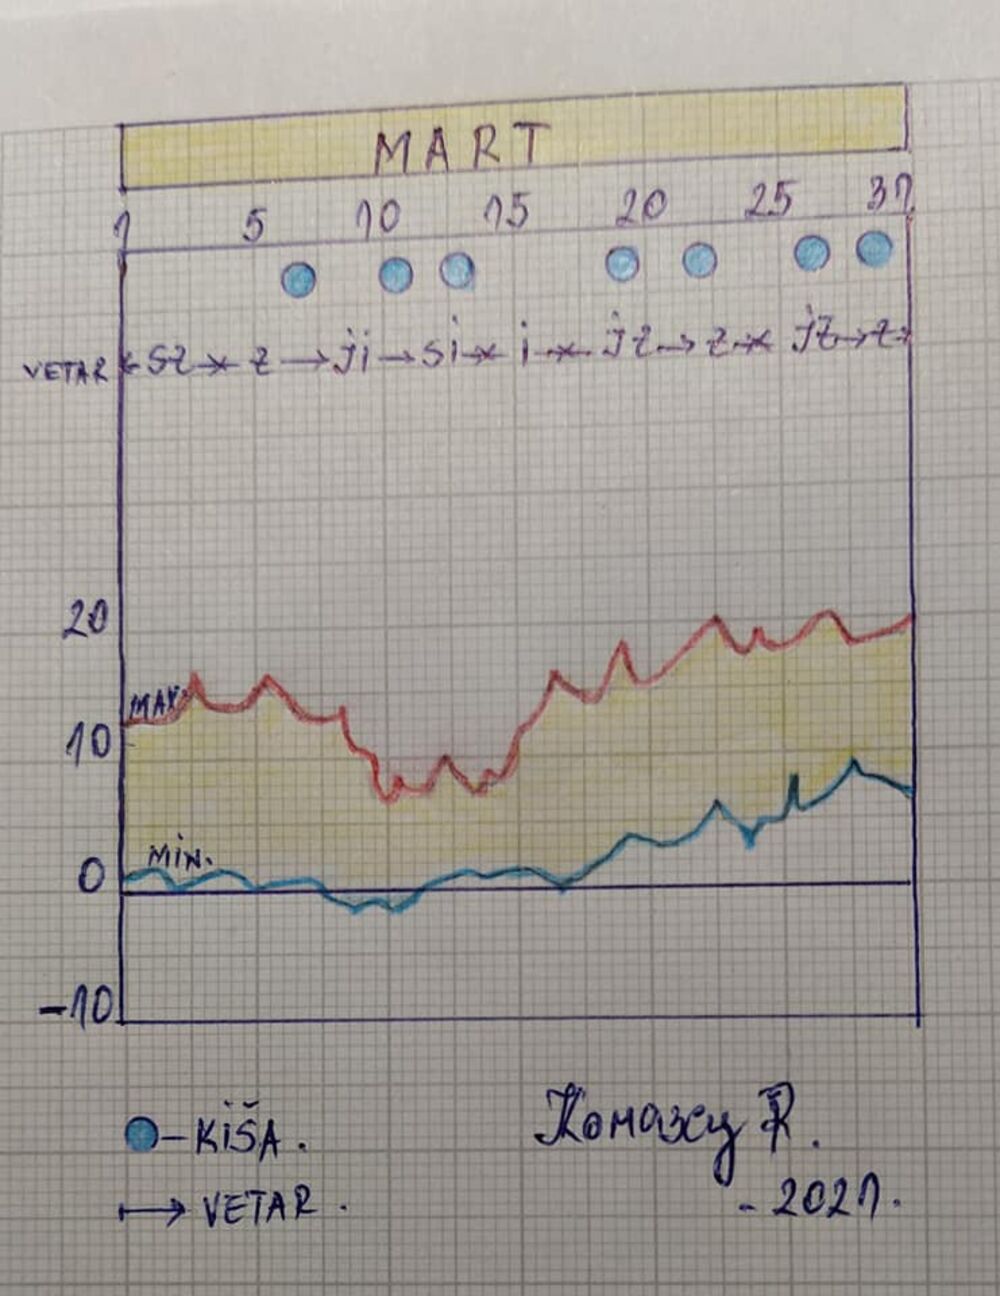 MART
1 5 10 15 20 25 31
VETAR SZ Z ji Si i jz z jz z
20
MAX.
10
MiN.
0
-10
-KiŠA.
VETAR.
R.
-2021.